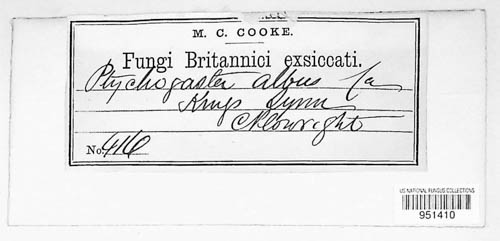 M. C. COOKE.
Fungi Britannici exsiccati.
Ptychogaster albus Ca
Kings Lynn
CPlowright
No. 416
US NATIONAL FUNGUS COLLECTIONS
951410